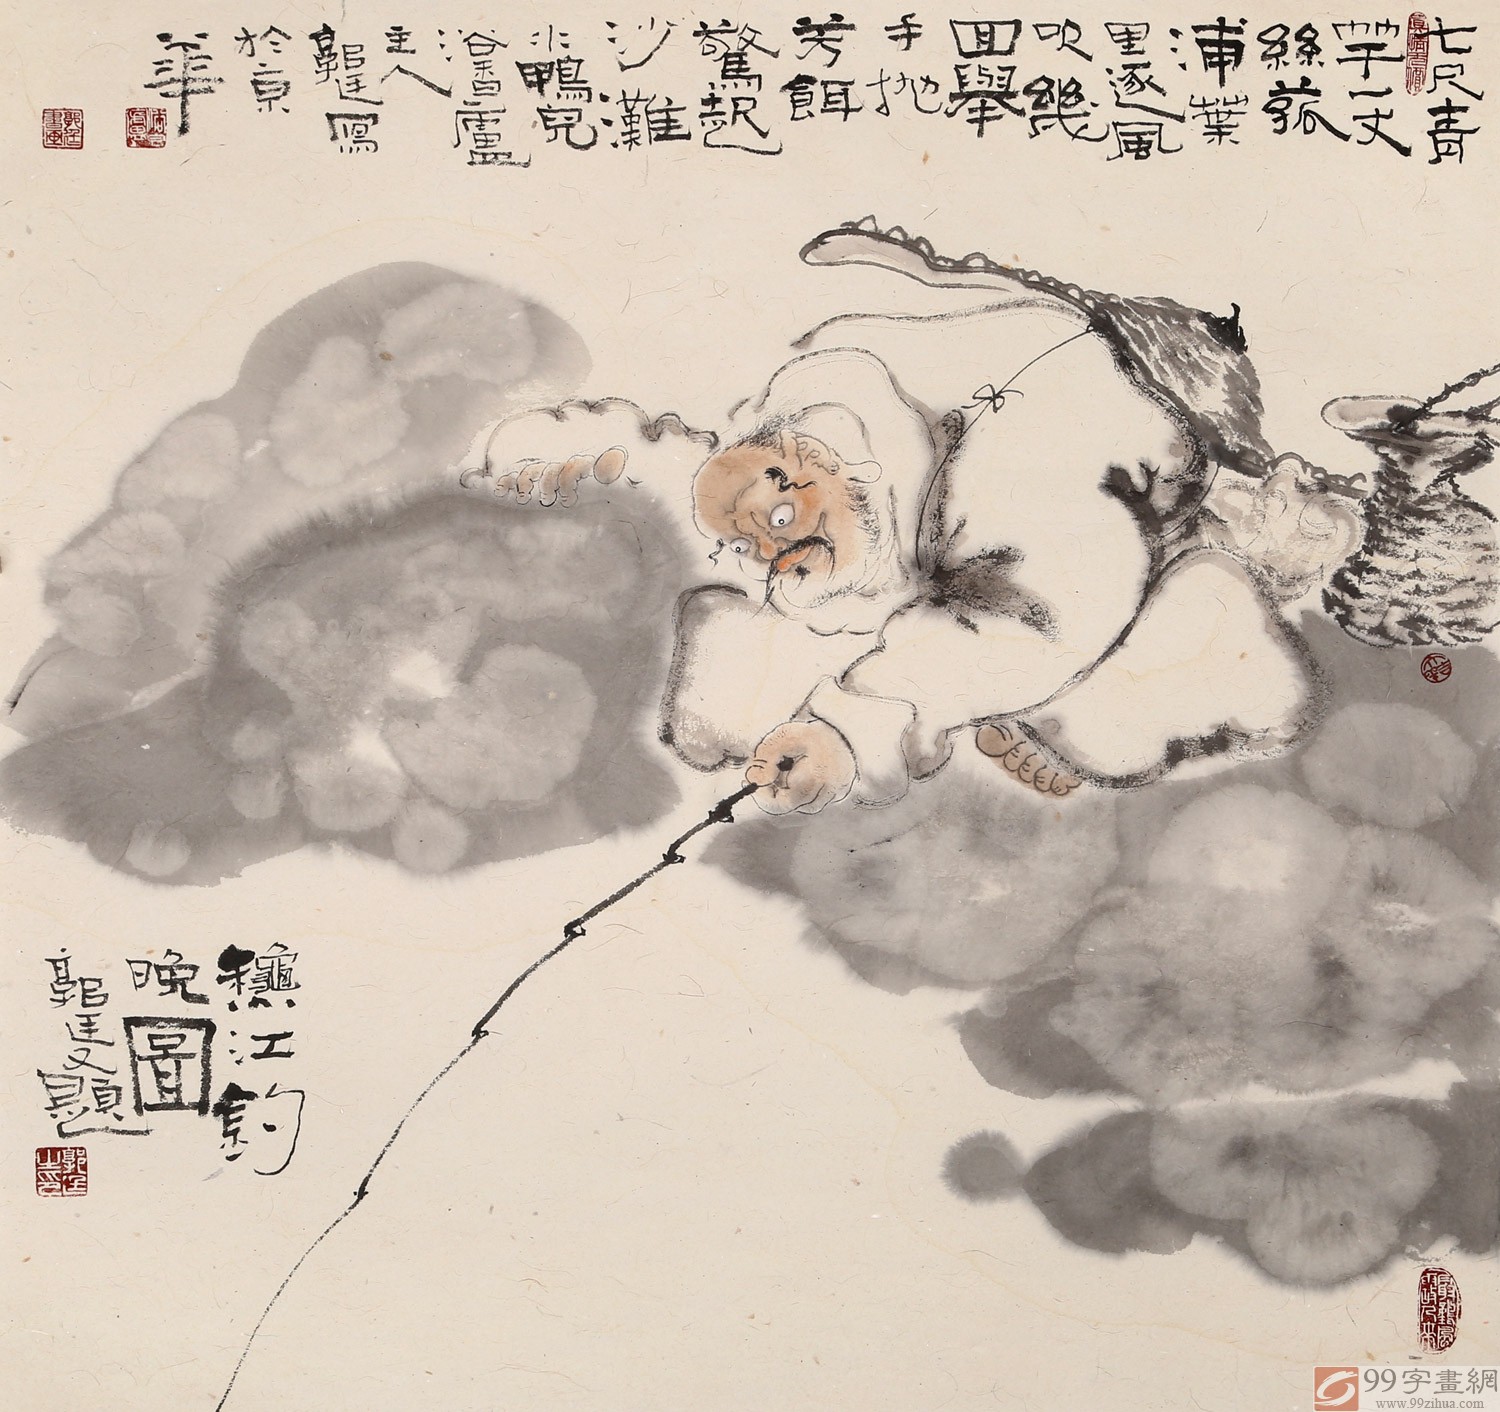 七尺青
竿一丈
絲菰
浦葉
里逐風
吹幾
回舉
手抛
芳餌
驚起
沙灘
水鴨兒
廬
主人
郭匡寫
於京
華
龝江釣
晚圖
郭匡又題
99字畫網
www.99zihua.com